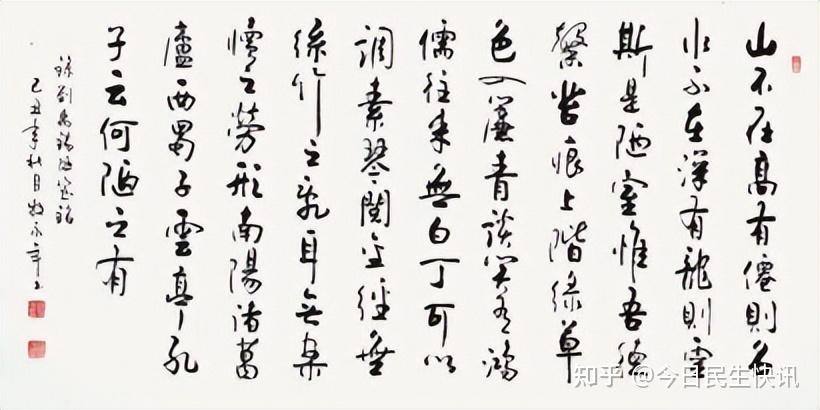 山不在高有僊則名
水不在深有龍則靈
斯是陋室惟吾德
馨苔痕上階綠草
色入簾青談笑有鴻
儒往來無白丁可以
調素琴閱金經無
絲竹之亂耳無案
牘之勞形南陽諸葛
廬西蜀子雲亭孔
子云何陋之有
錄劉禹錫陋室銘
己丑年秋月
知乎 @今日民生快讯